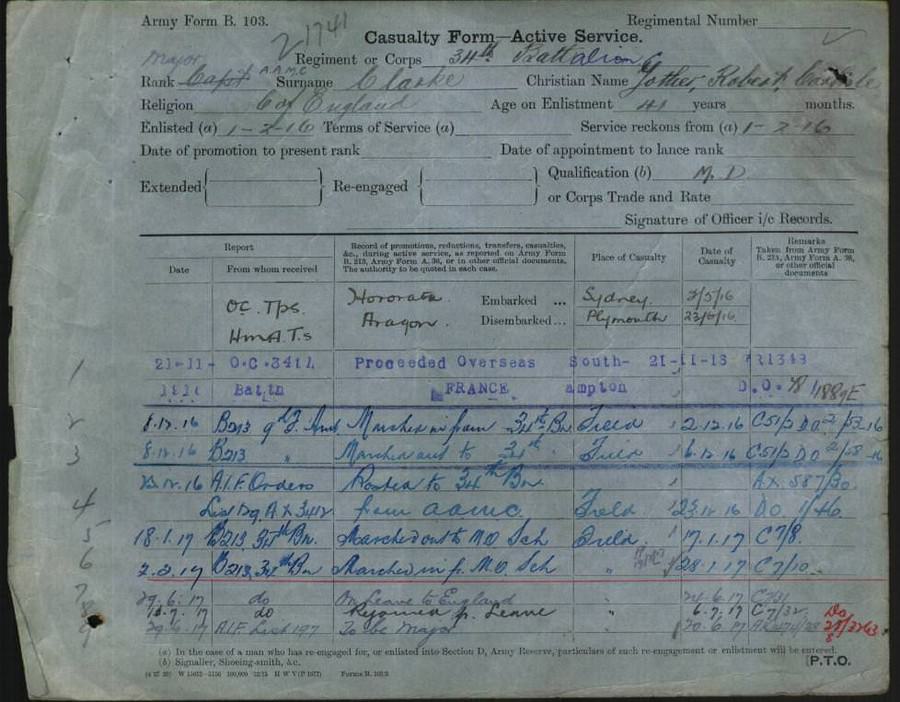 Army Form B. 103.
21741
Regimental Number
Casualty Form—Active Service.
Major
Regiment or Corps 34th Battalion
Rank Capt A.A.M.C Surname Clarke Christian Name Robert,
Religion C of England Age on Enlistment 41 years months.
Enlisted (a) 1-2-16 Terms of Service (a) Service reckons from (a) 1-2-16
Date of promotion to present rank Date of appointment to lance rank
Extended Re-engaged Qualification (b) M.D
or Corps Trade and Rate
Signature of Officer i/c Records.
Report
Date From whom received
Record of promotions, reductions, transfers, casualties, &c., during active service, as reported on Army Form B. 213, Army Form A. 36, or in other official documents. The authority to be quoted in each case.
Place of Casualty
Date of Casualty
Remarks Taken from Army Form B. 213, Army Form A. 36, or other official documents
OC. Tps. Hororata Embarked ... Sydney. 2/5/16
HmA.Ts Aragon. Disembarked... Plymouth 23/6/16
1 21-11- O.C. 34th Proceeded Overseas South- 21-11-16
Battn FRANCE ampton D.O.
2 8.12.16 B213 Marched in from 34th Bn Field 2.12.16
3 8.12.16 B213 " Marched out to 34th Field 6.12.16
A.I.F. Orders Posted to 34th Bn
4 from aamc. Field
5 18.1.17 B213, 34th Bn. Marched out to M.O Sch Field 17.1.17 C7/8.
6 2.2.17 B213, 34th Bn Marched in f. M.O. Sch " 28.1.17 C7/10.
7 29.6.17 do On Leave to England 24.6.17
8 do Rejoined f. Leave " 6.7.17 C7/32
9 29.6.17 A.I.F. List 197 To be Major
(a) In the case of a man who has re-engaged for, or enlisted into Section D, Army Reserve, particulars of such re-engagement or enlistment will be entered.
(b) Signaller, Shoeing-smith, &c.
[P.T.O.